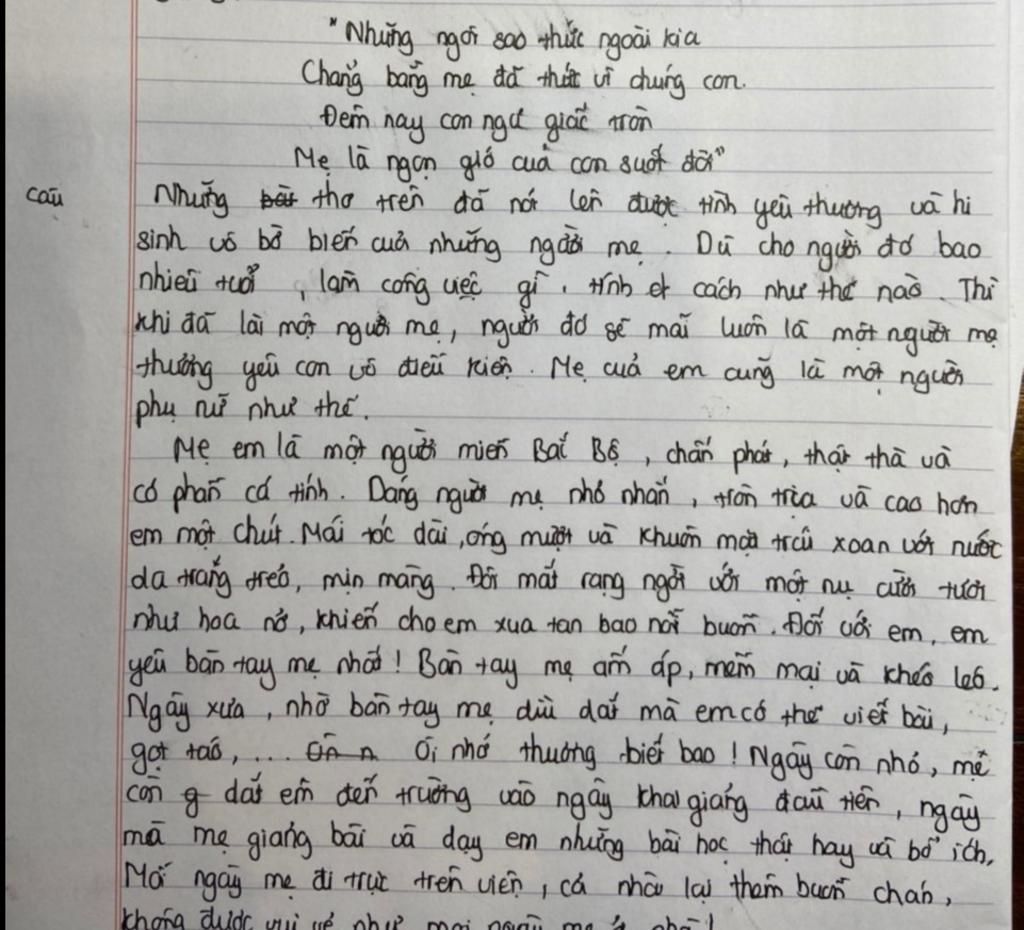 "Những ngôi sao thức ngoài kia
Chẳng bằng mẹ đã thức vì chúng con.
Đêm nay con ngủ giấc tròn
Mẹ là ngọn gió của con suốt đời"
câu Những thơ trên đã nói lên được tình yêu thương và hi
sinh vô bờ bến của những người mẹ. Dù cho người đó bao
nhiêu tuổi, làm công việc gì, tính cách như thế nào. Thì
khi đã là một người mẹ, người đó sẽ mãi luôn là một người mẹ
thương yêu con vô điều kiện. Mẹ của em cũng là một người
phụ nữ như thế.
Mẹ em là một người miền Bắc Bộ, chân phát, thật thà và
có phần cá tính. Dáng người mẹ nhỏ nhắn, tròn trịa và cao hơn
em một chút. Mái tóc dài, óng mượt và khuôn mặt trái xoan với nước
da trắng trẻo, mịn màng. Đôi mắt rạng ngời với một nụ cười tươi
như hoa nở, khiến cho em xua tan bao nỗi buồn. Đối với em, em
yêu bàn tay mẹ nhất! Bàn tay mẹ ấm áp, mềm mại và khéo léo.
Ngày xưa, nhờ bàn tay mẹ dìu dắt mà em có thể viết bài,
gọt táo, ... Ôi nhớ thương biết bao! Ngày còn nhỏ, mẹ
còn dắt em đến trường vào ngày khai giảng đầu tiên, ngày
mà mẹ giảng bài và dạy em những bài học thật hay và bổ ích.
Mỗi ngày mẹ đi trực trên viện, cả nhà lại thêm buồn chán,
không được vui vẻ như mọi ngày mẹ ở nhà!